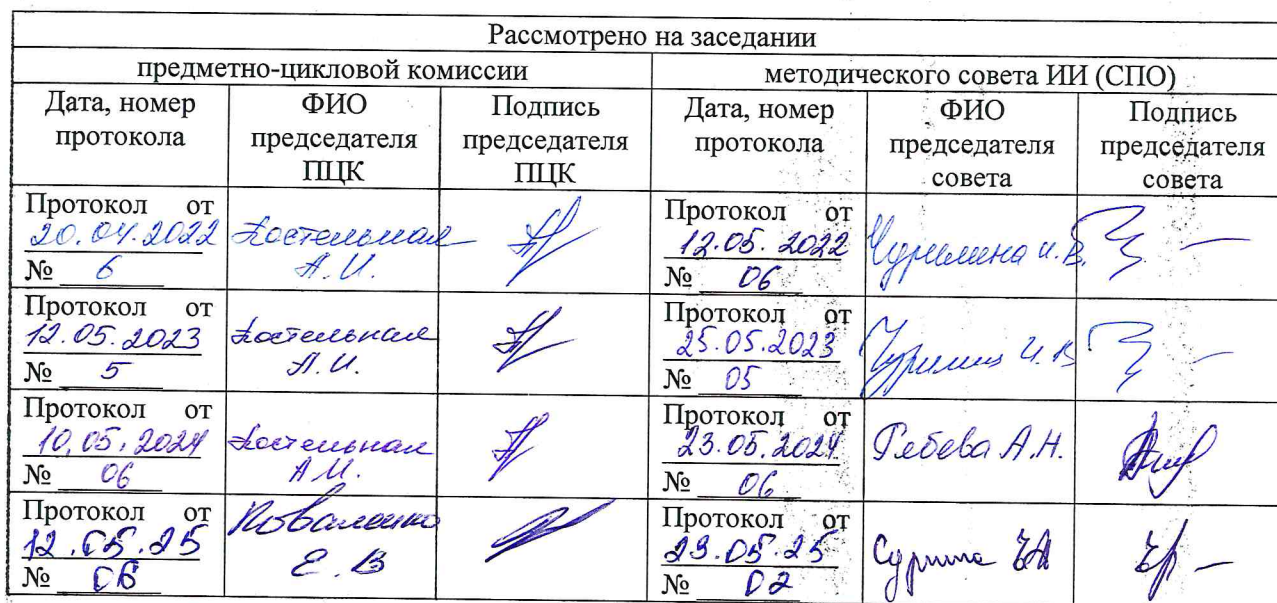 Рассмотрено на заседании
предметно-цикловой комиссии
методического совета ИИ (СПО)
Дата, номер протокола
ФИО председателя ПЦК
Подпись председателя ПЦК
Дата, номер протокола
ФИО председателя совета
Подпись председателя совета
Протокол от
20.04.2022
№ 6
Костельная
А.И.
Протокол от
12.05.2022
№ 06
Чурилина И.В.
Протокол от
12.05.2023
№ 5
Костельная
А.И.
Протокол от
25.05.2023
№ 05
И.В
Протокол от
10.05.2024
№ 06
Костельная
А.И.
Протокол от
23.05.2024
№ 06
А.Н.
Протокол от
12.05.25
№ 06
Коваленко
Е.В
Протокол от
№ 02